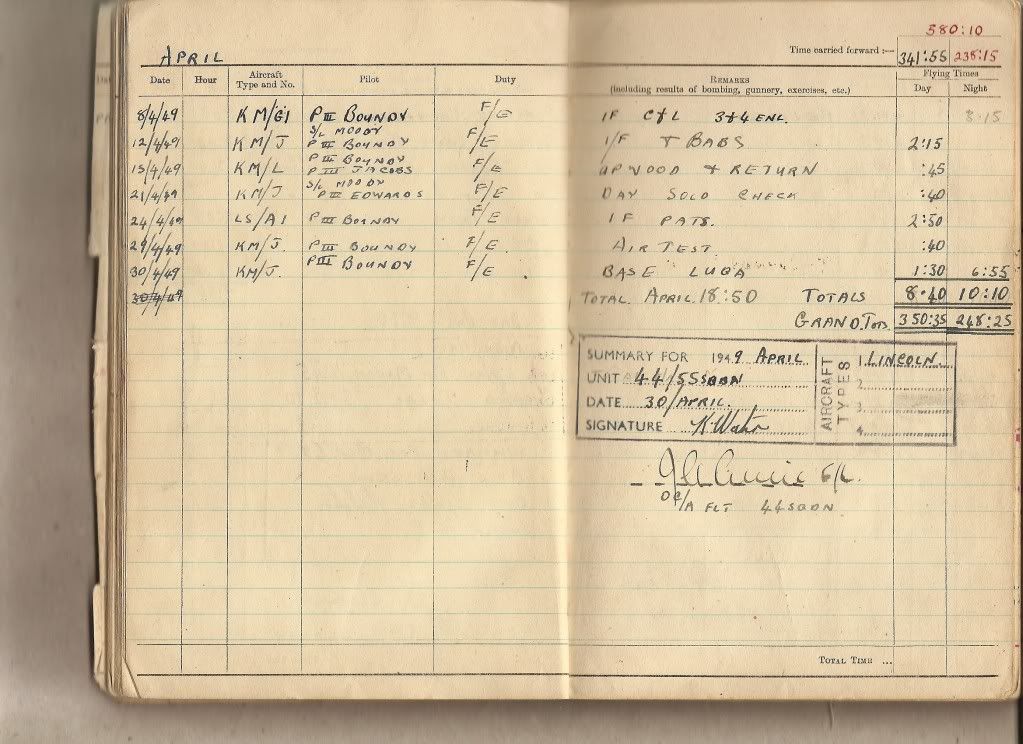 580:10
APRIL
Time carried forward :— 341:55 238:15
Date Hour Aircraft Type and No. Pilot Duty REMARKS (including results of bombing, gunnery, exercises, etc.) Flying Times Day Night
8/4/49 KM/G1 P III BOUNDY F/E IF C+L 3+4 ENG. 3.15
12/4/49 KM/J S/L MOODY P III BOUNDY F/E I/F + BABS 2:15
15/4/49 KM/L P III BOUNDY P III JACOBS F/E UPWOOD + RETURN :45
21/4/49 KM/J S/L MOODY P III EDWARDS F/E DAY SOLO CHECK :40
24/4/49 LS/A1 P III BOUNDY F/E IF PATS. 2:50
29/4/49 KM/J. P III BOUNDY F/E AIR TEST. :40
30/4/49 KM/J. P III BOUNDY F/E BASE LUQA 1:30 6:55
30/4/49 TOTAL APRIL 18:50 TOTALS 8:40 10:10
GRAND. TOTS. 350:35 248:25
SUMMARY FOR 1949 APRIL
UNIT 44/55 SQDN
DATE 30/APRIL.
SIGNATURE
AIRCRAFT TYPES
1. LINCOLN.
2.
3.
4.
F/L.
OC/A FLT 44 SQDN.
TOTAL TIME ...